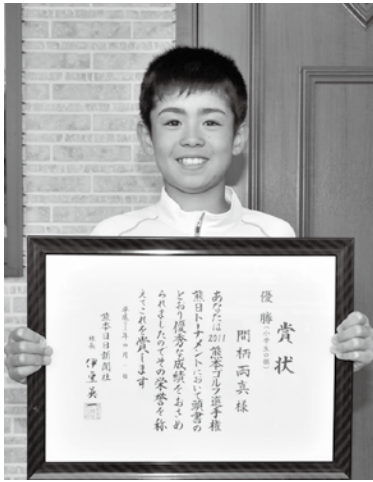 賞状
優勝(小学生の部)
間柄両真様
あなたは2011熊本ゴルフ選手権
熊日トーナメントにおいて頭書の
とおり優秀な成績をおさめ
られましたのでその栄誉を称
えてこれを賞します
熊本日日新聞社
社長 伊豆英一